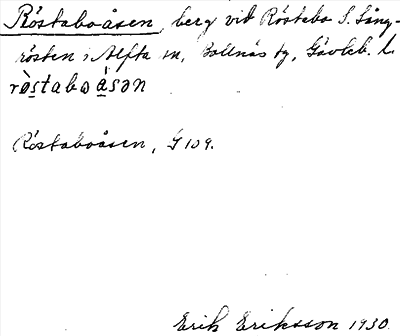 Röstaboåsen, berg vid Röstebo S. Lång-
rösten i Alfta sn, Bollnäs tg, Gävleb. l.
rò̱stabɷå̱sən
Röstaboåsen, G 109.
Erik Eriksson 1930.